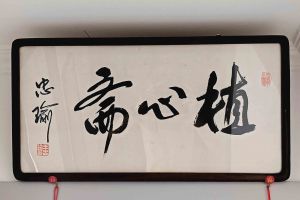 植心斋
忠瑜